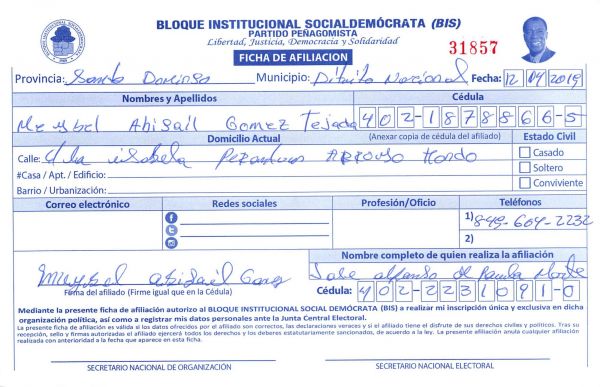 BLOQUE INSTITUCIONAL SOCIALDEMÓCRATA (BIS)
PARTIDO PEÑAGOMISTA
Libertad, Justicia, Democracia y Solidaridad
31857
FICHA DE AFILIACION
Provincia: Santo Domingo Municipio: Distrito Nacional Fecha: 12 04 2019
Nombres y Apellidos Cédula
Meysbel Abigail Gomez Tejada 402-1878866-5
Domicilio Actual (Anexar copia de cédula del afiliado) Estado Civil
Calle: isabela Arroyo Hondo
Casado
#Casa / Apt. / Edificio:
Soltero
Barrio / Urbanización:
Conviviente
Correo electrónico Redes sociales Profesión/Oficio Teléfonos
1) 849-604-2232
2)
Nombre completo de quien realiza la afiliación
Meysbel abigail Gomez Jose alfonso de Paula
Firma del afiliado (Firme igual que en la Cédula)
Cédula: 402-2231091-0
Mediante la presente ficha de afiliación autorizo al BLOQUE INSTITUCIONAL SOCIAL DEMÓCRATA (BIS) a realizar mi inscripción única y exclusiva en dicha
organización política, así como a registrar mis datos personales ante la Junta Central Electoral.
La presente ficha de afiliación es válida si los datos ofrecidos por el afiliado son correctos, las declaraciones veraces y si el afiliado tiene el disfrute de sus derechos civiles y políticos. Tras su
recepción, sello y firmas autorizadas el afiliado ejercerá todos los derechos y los deberes estatutariamente sancionados, de acuerdo a la ley. La presente afiliación anula cualquier afiliación
realizada con anterioridad a la fecha que aparece en esta ficha.
SECRETARIO NACIONAL DE ORGANIZACIÓN SECRETARIO NACIONAL ELECTORAL